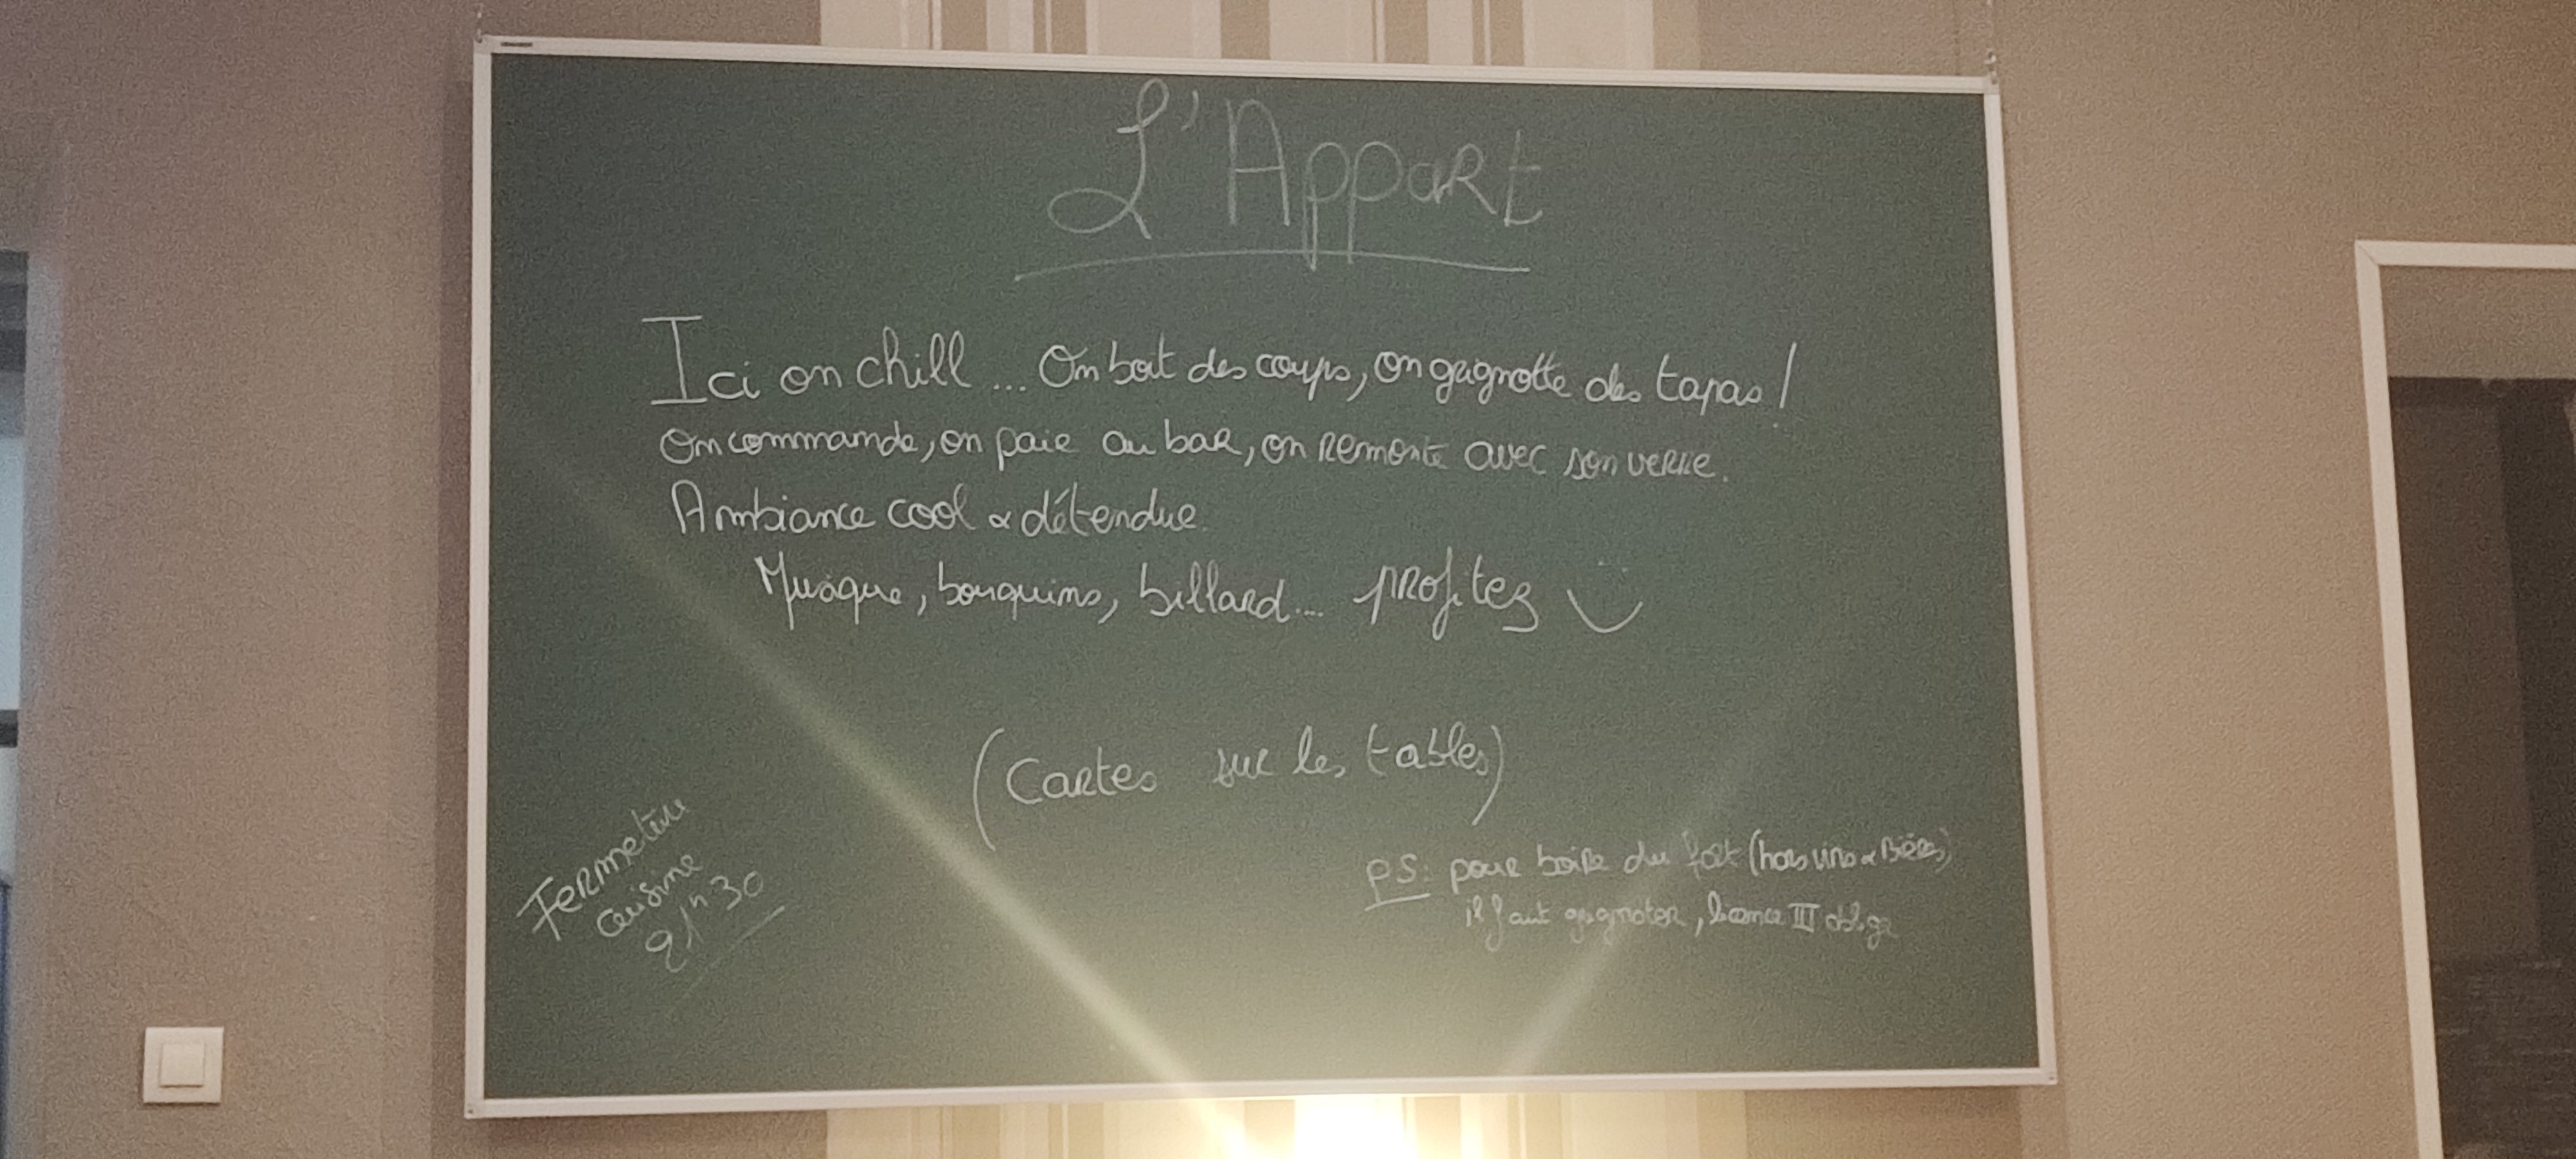 L'Appart
Ici on chill ... On boit des coups, on grignotte des tapas !
On commande, on paie au bar, on remonte avec son verre.
Ambiance cool & détendue.
Musique, bouquins, billard.... profitez
(Cartes sur les tables)
Fermeture
cuisine
21h30
PS: pour boire du fort (hors vins & Bières)
il faut grignoter, licence III oblige